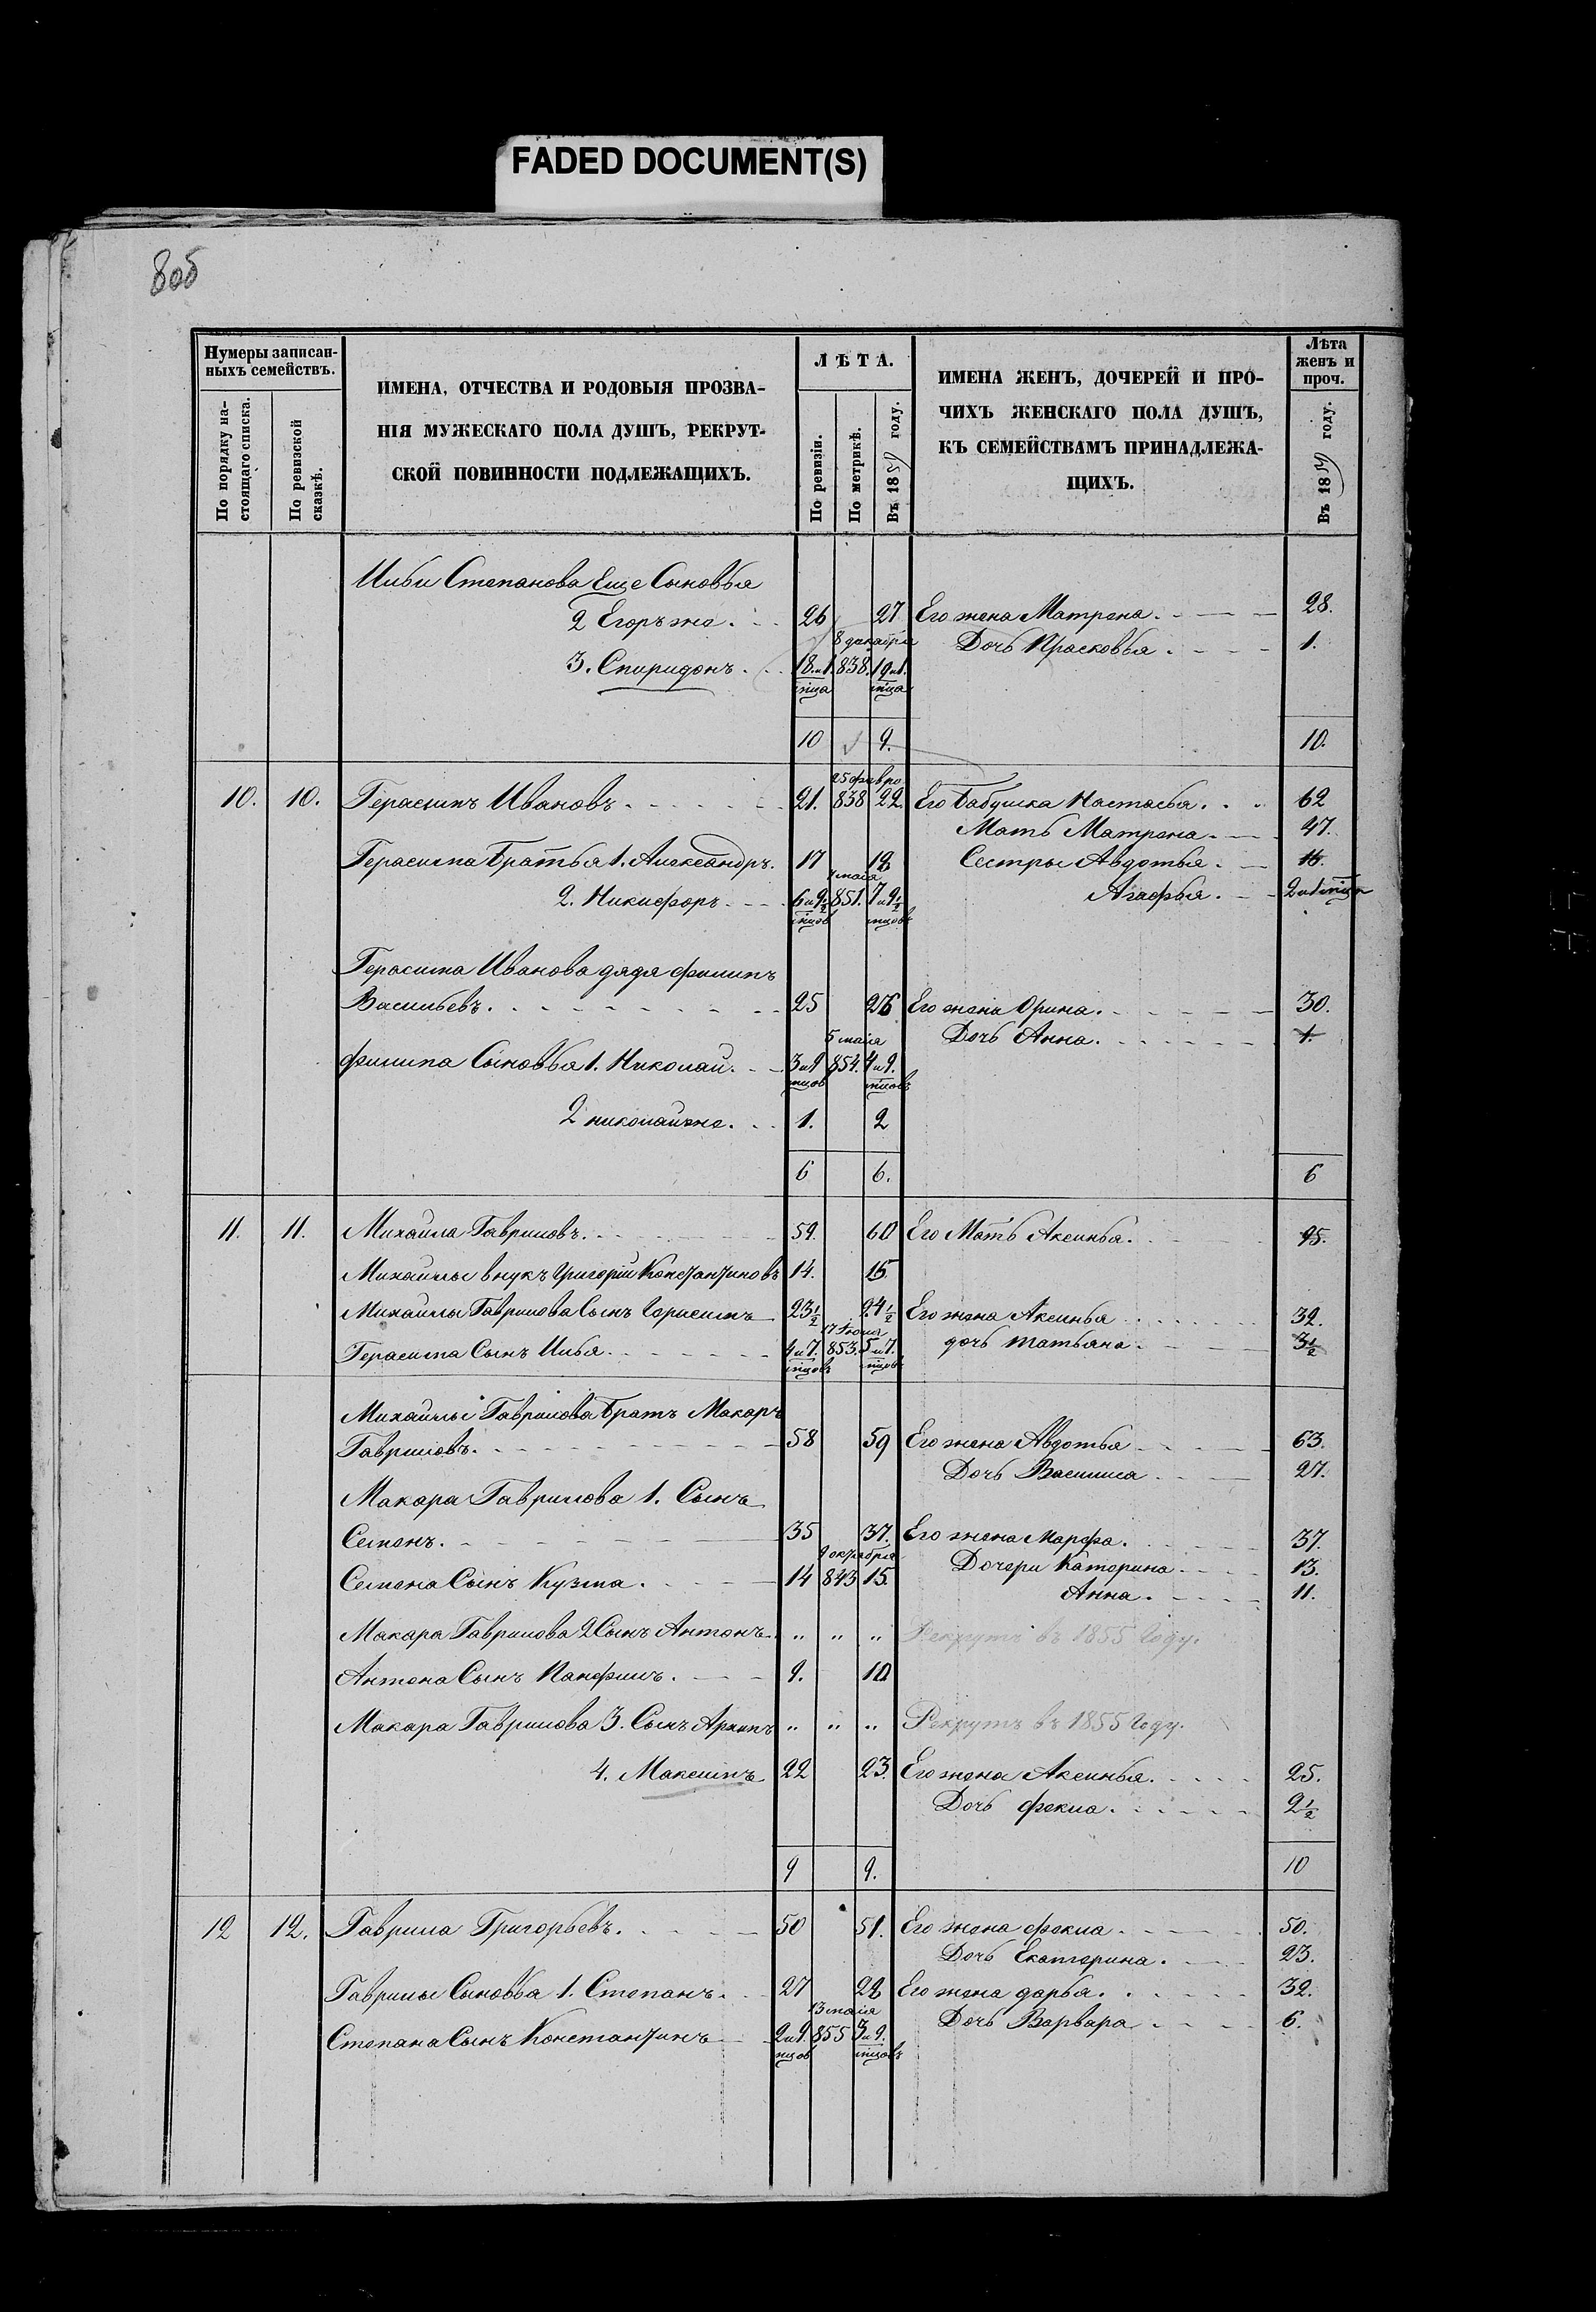 FADED DOCUMENT(S)
8об
Нумеры записан-
ныхъ семействъ.
По порядку на-
стоящаго списка.
По ревизской
сказкѣ.
ИМЕНА, ОТЧЕСТВА И РОДОВЫЯ ПРОЗВА-
НІЯ МУЖЕСКАГО ПОЛА ДУШЪ, РЕКРУТ-
СКОЙ ПОВИННОСТИ ПОДЛЕЖАЩИХЪ.
ЛѢТА.
По ревизіи.
По метрикѣ.
Въ 18 году.
ИМЕНА ЖЕНЪ, ДОЧЕРЕЙ И ПРО-
ЧИХЪ ЖЕНСКАГО ПОЛА ДУШЪ,
КЪ СЕМЕЙСТВАМЪ ПРИНАДЛЕЖА-
ЩИХЪ.
Лѣта
женъ и
проч.
Въ 18 году.
Ильи Степанова Еще Сыновья
2 Егоръ же. 26 27 Его жена Матрена. 28.
8 декабря Дочь Прасковья. 1.
3. Спиридонъ. 18. и 1. 838. 19 и 1.
мца мца
10 9. 10.
25 февро
10. 10. Герасимъ Ивановъ. 21. 838 22. Его бабушка Настасья. 62
Мать Матрена. 47.
Герасима Братья 1. Александръ. 17 18 Сестры Авдотья. 16.
7 маія
2. Никифоръ. 6 и 9½ 851. 7 и 9½ Агафья. 2 и 1 мцъ
мцов мцовъ
Герасима Иванова дядя филипъ
Васильевъ. 25 26 Его жена Орина. 30.
5 маія Дочь Анна. 1.
филипа Сыновья 1. Николай. 3 и 9 854. 4 и 9.
мцов мцовъ
2 николай же. 1. 2
6 6. 6
11. 11. Михайла Гавриловъ. 59. 60 Его Мать Аксинья. 95.
Михайлы внукъ Григорій Константиновъ 14. 15
Михайлы Гаврилова Сынъ Герасимъ 23½ 24½ Его жена Аксинья 32.
17 Іюня
Герасима Сынъ Илья. 4 и 7. 853. 5 и 7. дочь татьяна. 3½
мцовъ мцовъ
Михайлы Гаврилова Братъ Макаръ
Гавриловъ. 58 59 Его жена Авдотья 63.
Дочь Василиса 27.
Макара Гаврилова 1. Сынъ
Семенъ. 35 37. Его жена Марфа. 37.
9 октября Дочери Катерина. 13.
Семена Сынъ Кузма. 14 843 15. Анна. 11.
Макара Гаврилова 2 Сынъ Антонъ. „ „ „ Рекрутъ въ 1855 Году.
Антона Сынъ Панфилъ. 9. 10
Макара Гаврилова 3. Сынъ Архипъ „ „ „ Рекрутъ въ 1855 Году.
4. Максимъ 22 23. Его жена Аксинья. 25.
Дочь фекла. 2½
9 9. 10
12 12. Гаврила Григорьевъ. 50 51. Его жена фекла 50.
Дочь Екатерина. 23.
Гаврилы Сыновья 1. Степанъ. 27 28 Его жена дарья. 32.
13 маія Дочь Варвара 6.
Степана Сынъ Константинъ 2 и 9. 855 3 и 9.
мцов мцовъ